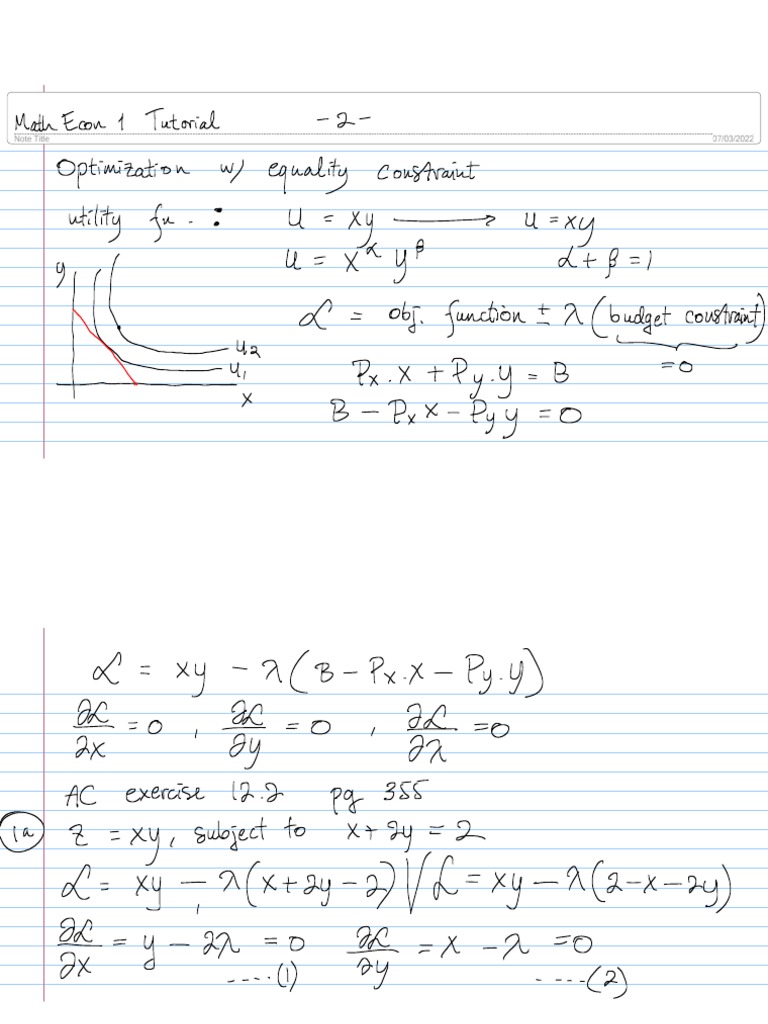 Math Econ 1 Tutorial - 2 -
Note Title 07/03/2022
Optimization w/ equality constraint
utility fn. : U = xy → U = xy
U = x^α y^β α + β = 1
y
ℒ = obj. function ± λ (budget constraint)
= 0
U2
U1
x
Px.x + Py.y = B
B - Px x - Py y = 0
ℒ = xy - λ(B - Px.x - Py.y)
∂ℒ/∂x = 0 , ∂ℒ/∂y = 0 , ∂ℒ/∂λ = 0
AC exercise 12.2 pg 355
1a z = xy, subject to x + 2y = 2
ℒ = xy - λ(x + 2y - 2) // ℒ = xy - λ(2 - x - 2y)
∂ℒ/∂x = y - 2λ = 0 ∂ℒ/∂y = x - λ = 0
....(1) ....(2)